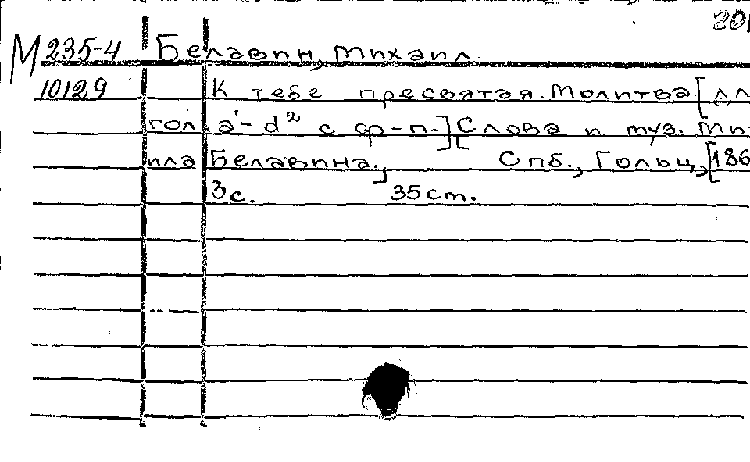 201
М 235-4 Белавин, Михаил
10129 К тебе пресвятая. Молитва [дл
гол. a'-d² с ф-п.] Слова и муз. Ми
ила Белавина. Спб., Гольц, [186
3с. 35 см.